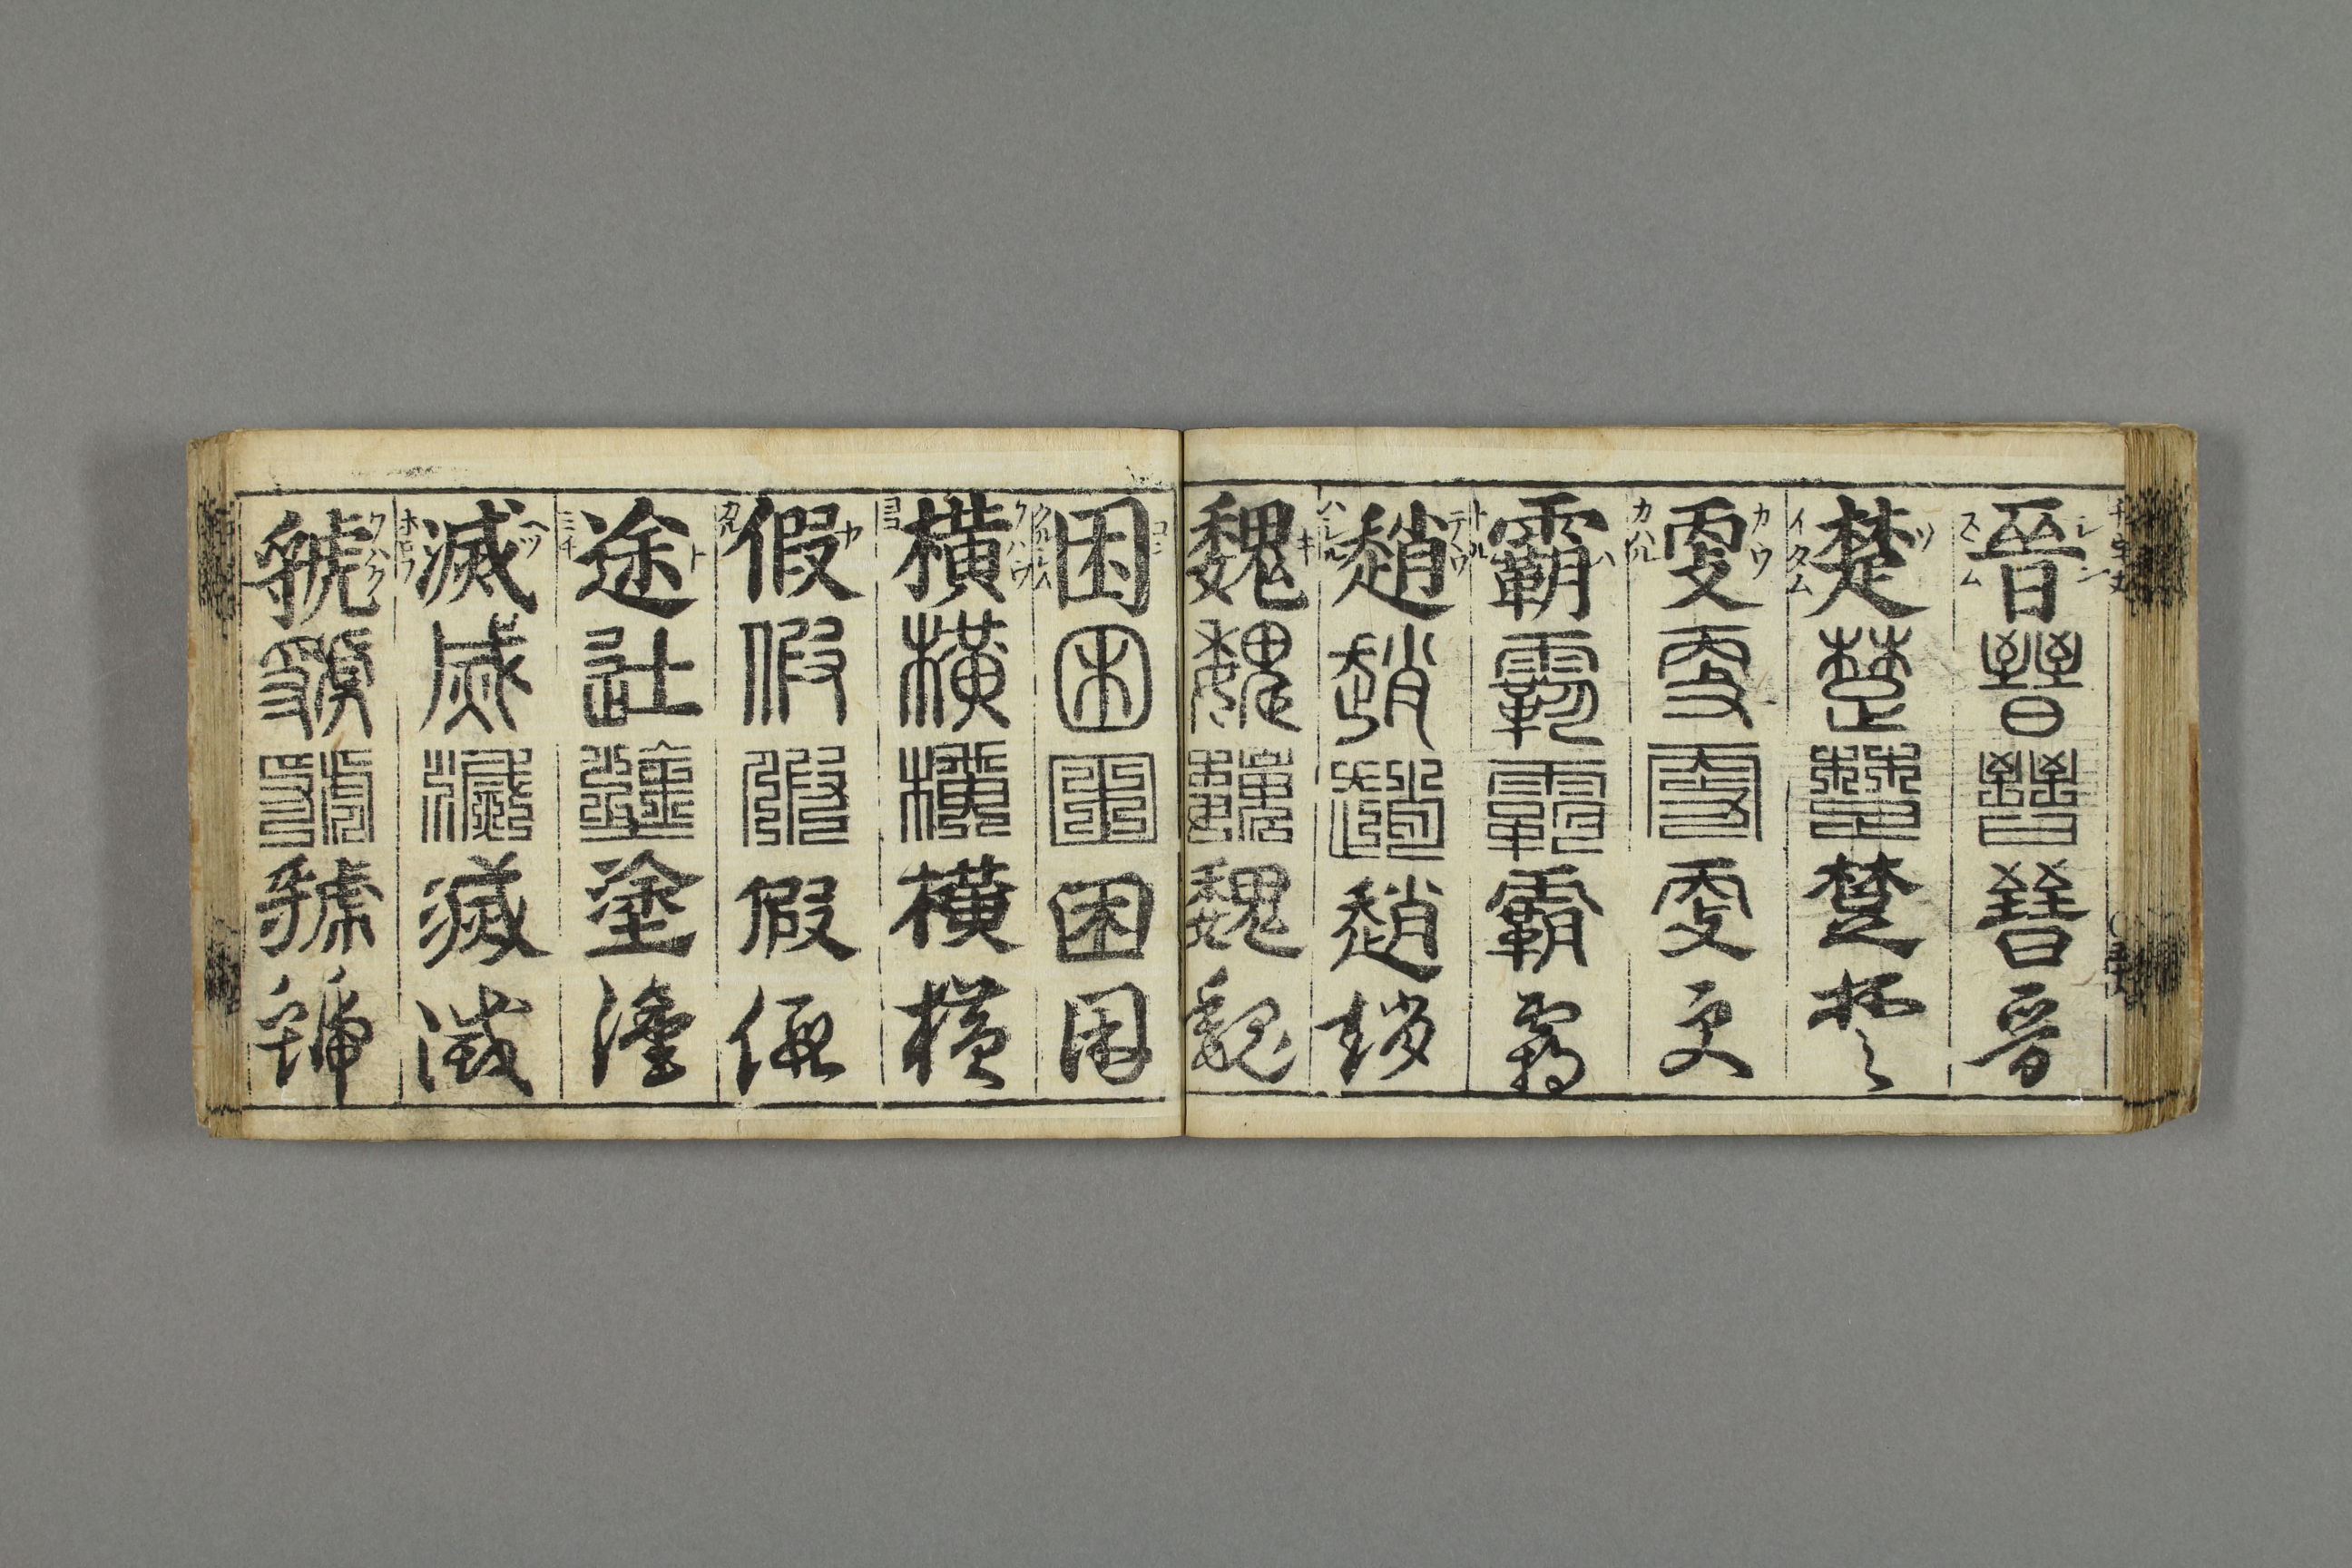 晉晉晉晉晉
シン
スヽム
楚楚楚楚楚
ソ
イタム
更更更更更
カウ
カハル
霸霸霸霸霸
ハ
トル
趙趙趙趙趙
テウ
魏魏魏魏魏
キ
困困困困困
コン
クルシム
橫橫橫橫橫
クハウ
ヨコ
假假假假假
カ
カル
途途途塗塗
ト
ミチ
滅滅滅滅滅
ヘツ
ホロフ
虢虢虢虢虢
クハク